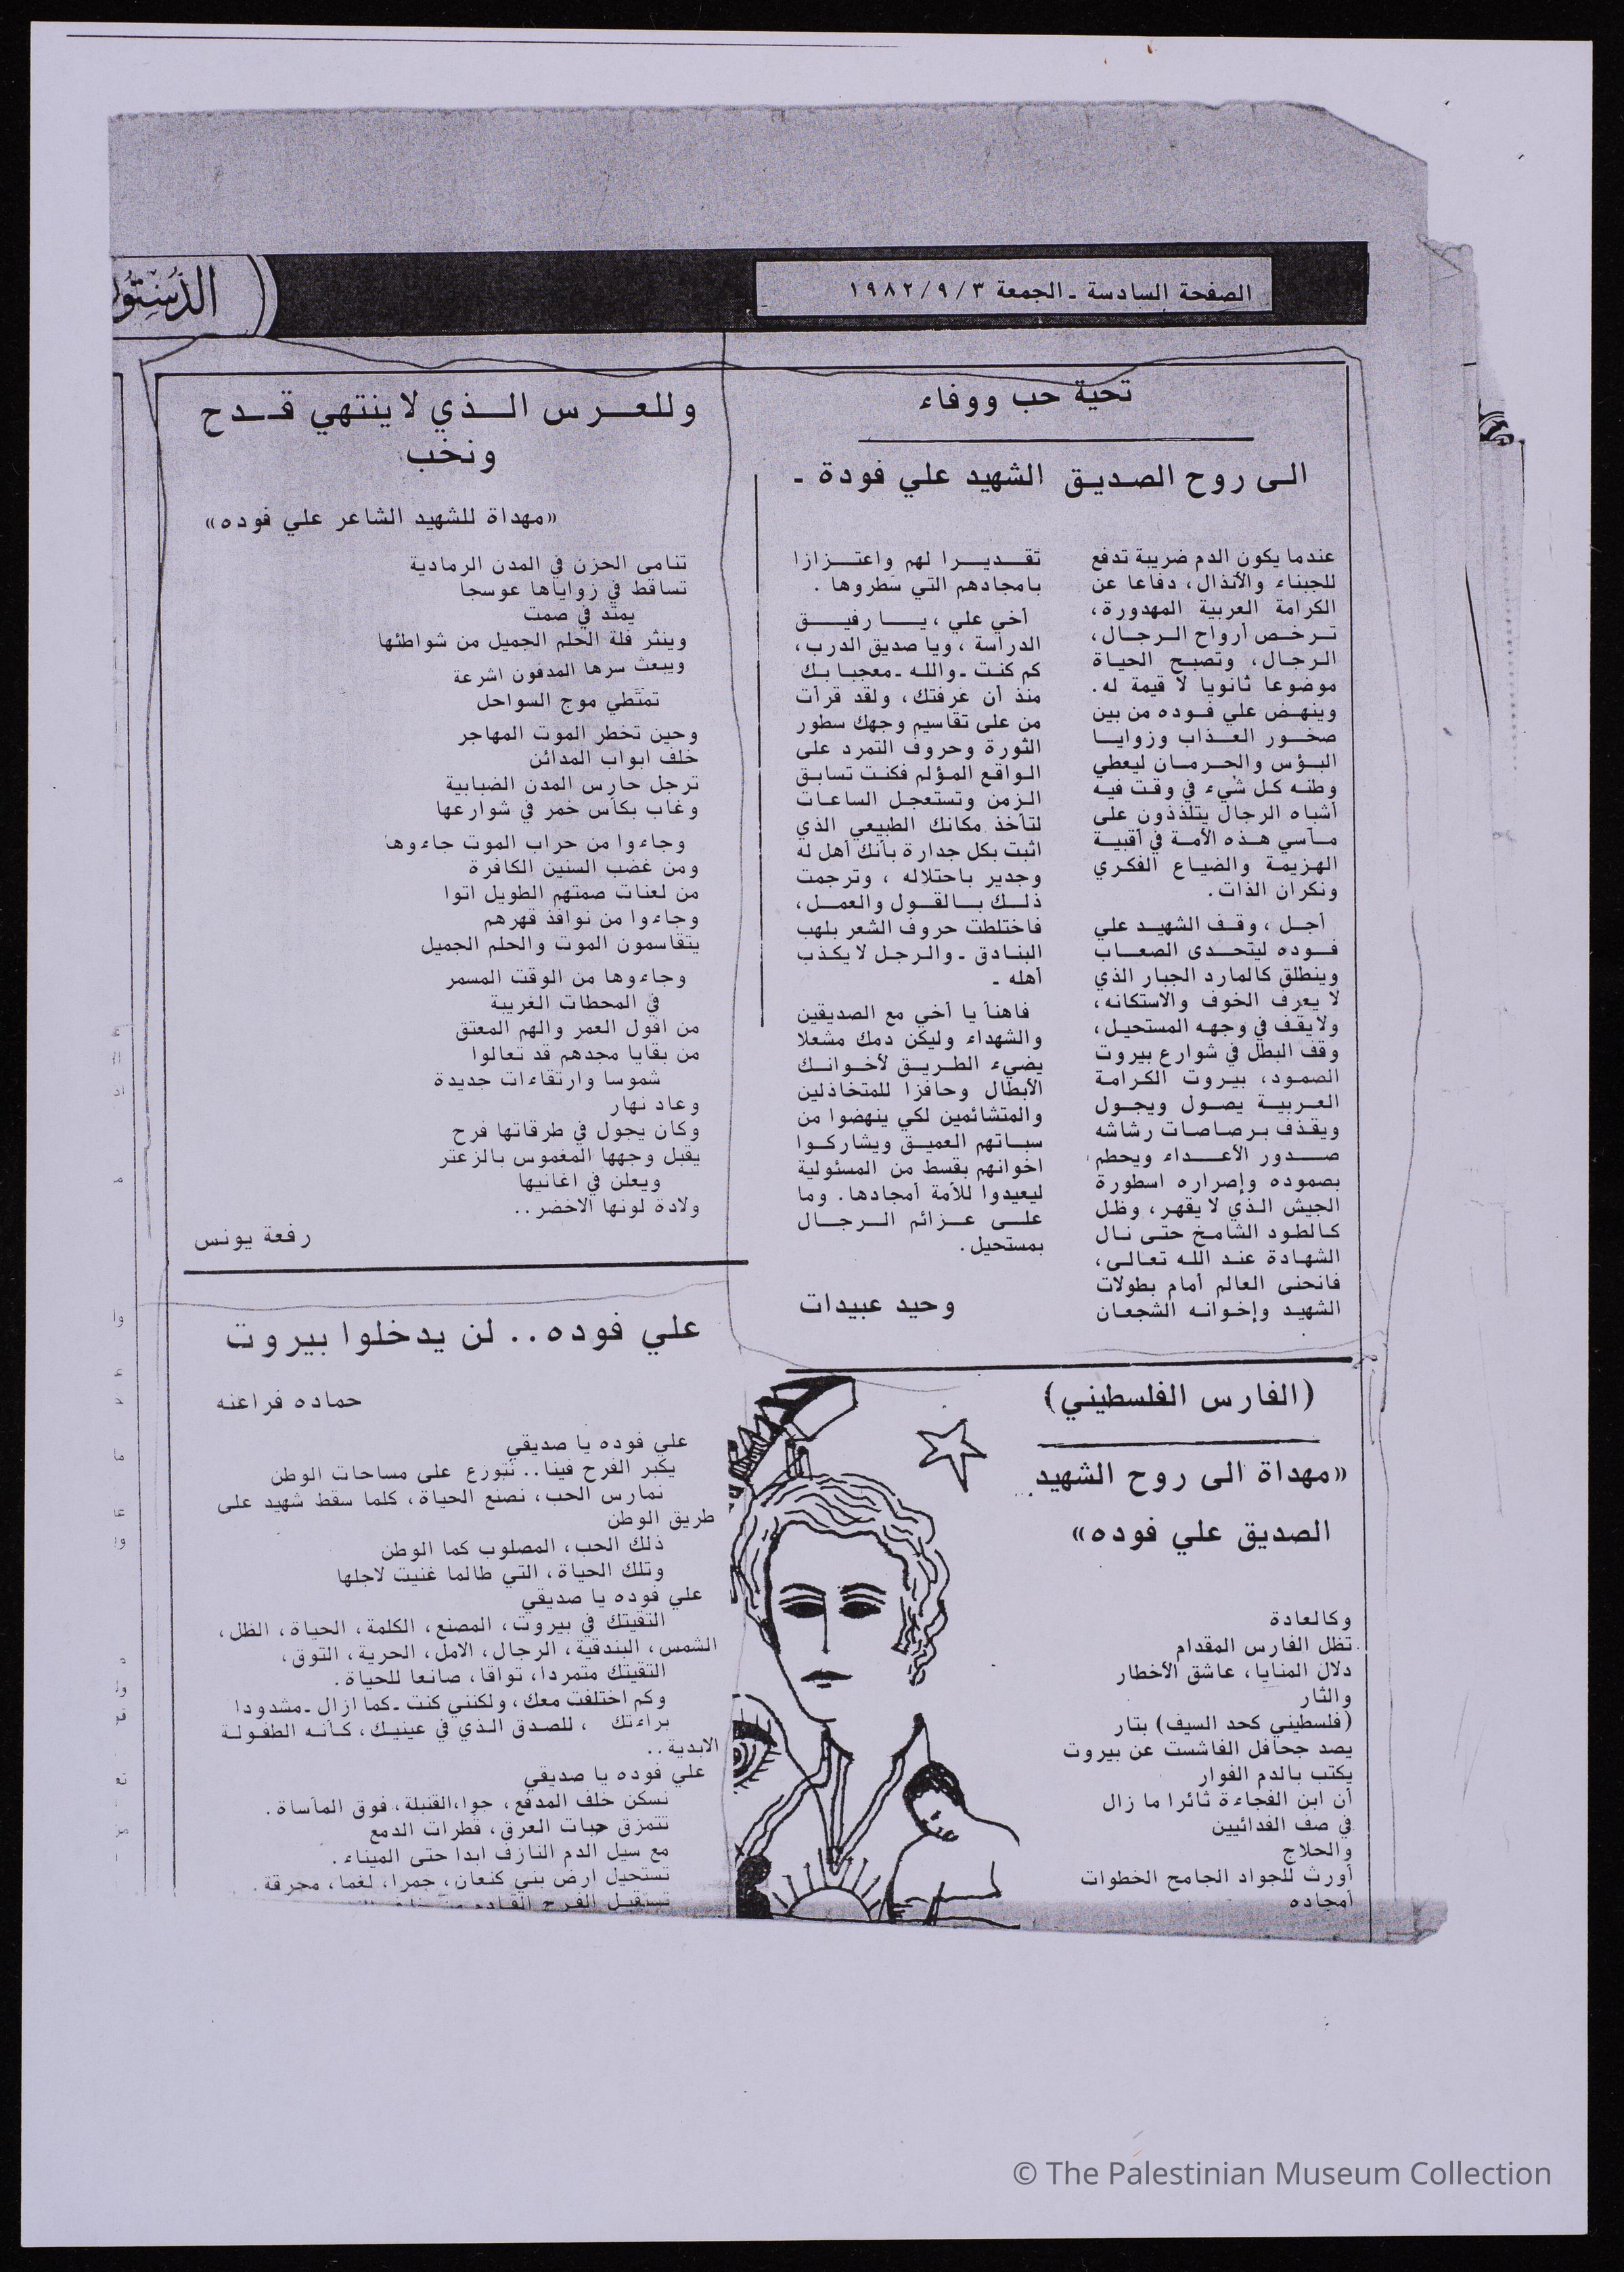 الصفحة السادسة ـ الجمعة ٣/٩/١٩٨٢
الدستور
تحية حب ووفاء
الى روح الصديق الشهيد علي فودة ـ
عندما يكون الدم ضريبة تدفع
للجبناء والأنذال، دفاعا عن
الكرامة العربية المهدورة،
ترخص أرواح الرجال،
الرجال، وتصبح الحياة
موضوعا ثانويا لا قيمة له.
وينهض علي فوده من بين
صخور العذاب وزوايا
البؤس والحرمان ليعطي
وطنه كل شيء في وقت فيه
أشباه الرجال يتلذذون على
مآسي هذه الأمة في أقبية
الهزيمة والضياع الفكري
ونكران الذات.
أجل، وقف الشهيد علي
فوده ليتحدى الصعاب
وينطلق كالمارد الجبار الذي
لا يعرف الخوف والاستكانه،
ولا يقف في وجهه المستحيل،
وقف البطل في شوارع بيروت
الصمود، بيروت الكرامة
العربية يصول ويجول
ويقذف برصاصات رشاشه
صدور الأعداء ويحطم
بصموده وإصراره اسطورة
الجيش الذي لا يقهر، وظل
كالطود الشامخ حتى نال
الشهادة عند الله تعالى،
فانحنى العالم أمام بطولات
الشهيد وإخوانه الشجعان
تقديرا لهم واعتزازا
بامجادهم التي سطروها .
أخي علي ، يا رفيق
الدراسة ، ويا صديق الدرب،
كم كنت ـ والله ـ معجبا بك
منذ أن عرفتك، ولقد قرأت
من على تقاسيم وجهك سطور
الثورة وحروف التمرد على
الواقع المؤلم فكنت تسابق
الزمن وتستعجل الساعات
لتأخذ مكانك الطبيعي الذي
اثبت بكل جدارة بأنك أهل له
وجدير باحتلاله ، وترجمت
ذلك بالقول والعمل،
فاختلطت حروف الشعر بلهب
البنادق ـ والرجل لا يكذب
أهله ـ
فاهنأ يا أخي مع الصديقين
والشهداء وليكن دمك مشعلا
يضيء الطريق لأخوانك
الأبطال وحافزا للمتخاذلين
والمتشائمين لكي ينهضوا من
سباتهم العميق ويشاركوا
اخوانهم بقسط من المسئولية
ليعيدوا للأمة أمجادها. وما
على عزائم الرجال
بمستحيل.
وحيد عبيدات
وللعرس الذي لا ينتهي قدح
ونخب
«مهداة للشهيد الشاعر علي فوده»
تنامى الحزن في المدن الرمادية
تساقط في زواياها عوسجا
يمتد في صمت
وينثر فلة الحلم الجميل من شواطئها
ويبعث سرها المدفون اشرعة
تمتطي موج السواحل
وحين تخطر الموت المهاجر
خلف ابواب المدائن
ترجل حارس المدن الضبابية
وغاب بكأس خمر في شوارعها
وجاءوا من حراب الموت جاءوها
ومن غضب السنين الكافرة
من لعنات صمتهم الطويل اتوا
وجاءوا من نوافذ قهرهم
يتقاسمون الموت والحلم الجميل
وجاءوها من الوقت المسمر
في المحطات الغريبة
من افول العمر والهم المعتق
من بقايا مجدهم قد تعالوا
شموسا وارتقاءات جديدة
وعاد نهار
وكان يجول في طرقاتها فرح
يقبل وجهها المغموس بالزعتر
ويعلن في اغانيها
ولادة لونها الاخضر..
رفعة يونس
(الفارس الفلسطيني)
«مهداة الى روح الشهيد
الصديق علي فوده»
وكالعادة
تظل الفارس المقدام
دلال المنايا، عاشق الأخطار
والثار
(فلسطيني كحد السيف) بتار
يصد جحافل الفاشست عن بيروت
يكتب بالدم الفوار
أن ابن الفجاءة ثائرا ما زال
في صف الفدائيين
والحلاج
أورث للجواد الجامح الخطوات
أمجاده
علي فوده.. لن يدخلوا بيروت
حماده فراعنه
علي فوده يا صديقي
يكبر الفرح فينا.. نتوزع على مساحات الوطن
نمارس الحب، نصنع الحياة، كلما سقط شهيد على
طريق الوطن
ذلك الحب، المصلوب كما الوطن
وتلك الحياة، التي طالما غنيت لاجلها
علي فوده يا صديقي
التقيتك في بيروت، المصنع، الكلمة، الحياة، الظل،
الشمس، البندقية، الرجال، الامل، الحرية، التوق،
التقيتك متمردا، تواقا، صانعا للحياة.
وكم اختلفت معك، ولكنني كنت ـ كما ازال ـ مشدودا
براءتك ، للصدق الذي في عينيك، كأنه الطفولة
الابدية..
علي فوده يا صديقي
نسكن خلف المدفع، جوا، القنبلة، فوق المأساة.
تتمزق حبات العرق، قطرات الدمع
مع سيل الدم النازف ابدا حتى الميناء.
تستحيل ارض بني كنعان، جمرا، لغما، محرقة.
تستقبل الفرح القادم
© The Palestinian Museum Collection